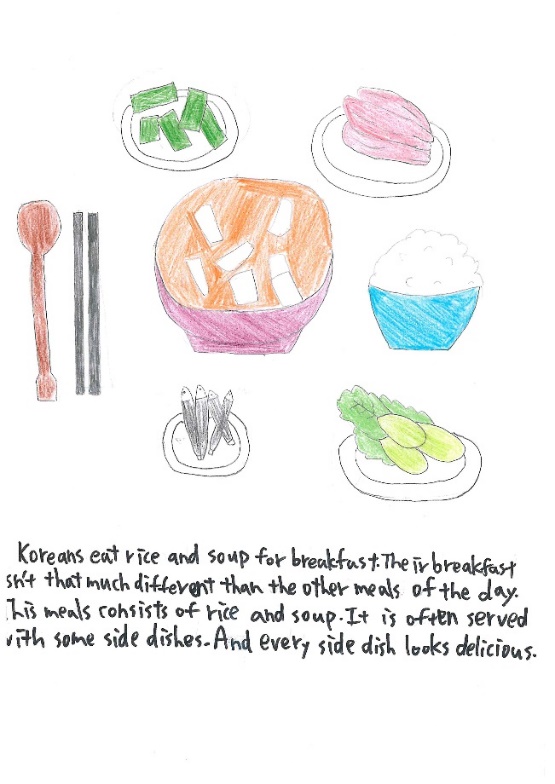 Koreans eat rice and soup for breakfast. Their breakfast
sn't that much different than the other meals of the day.
his meals consists of rice and soup. It is often served
ith some side dishes. And every side dish looks delicious.